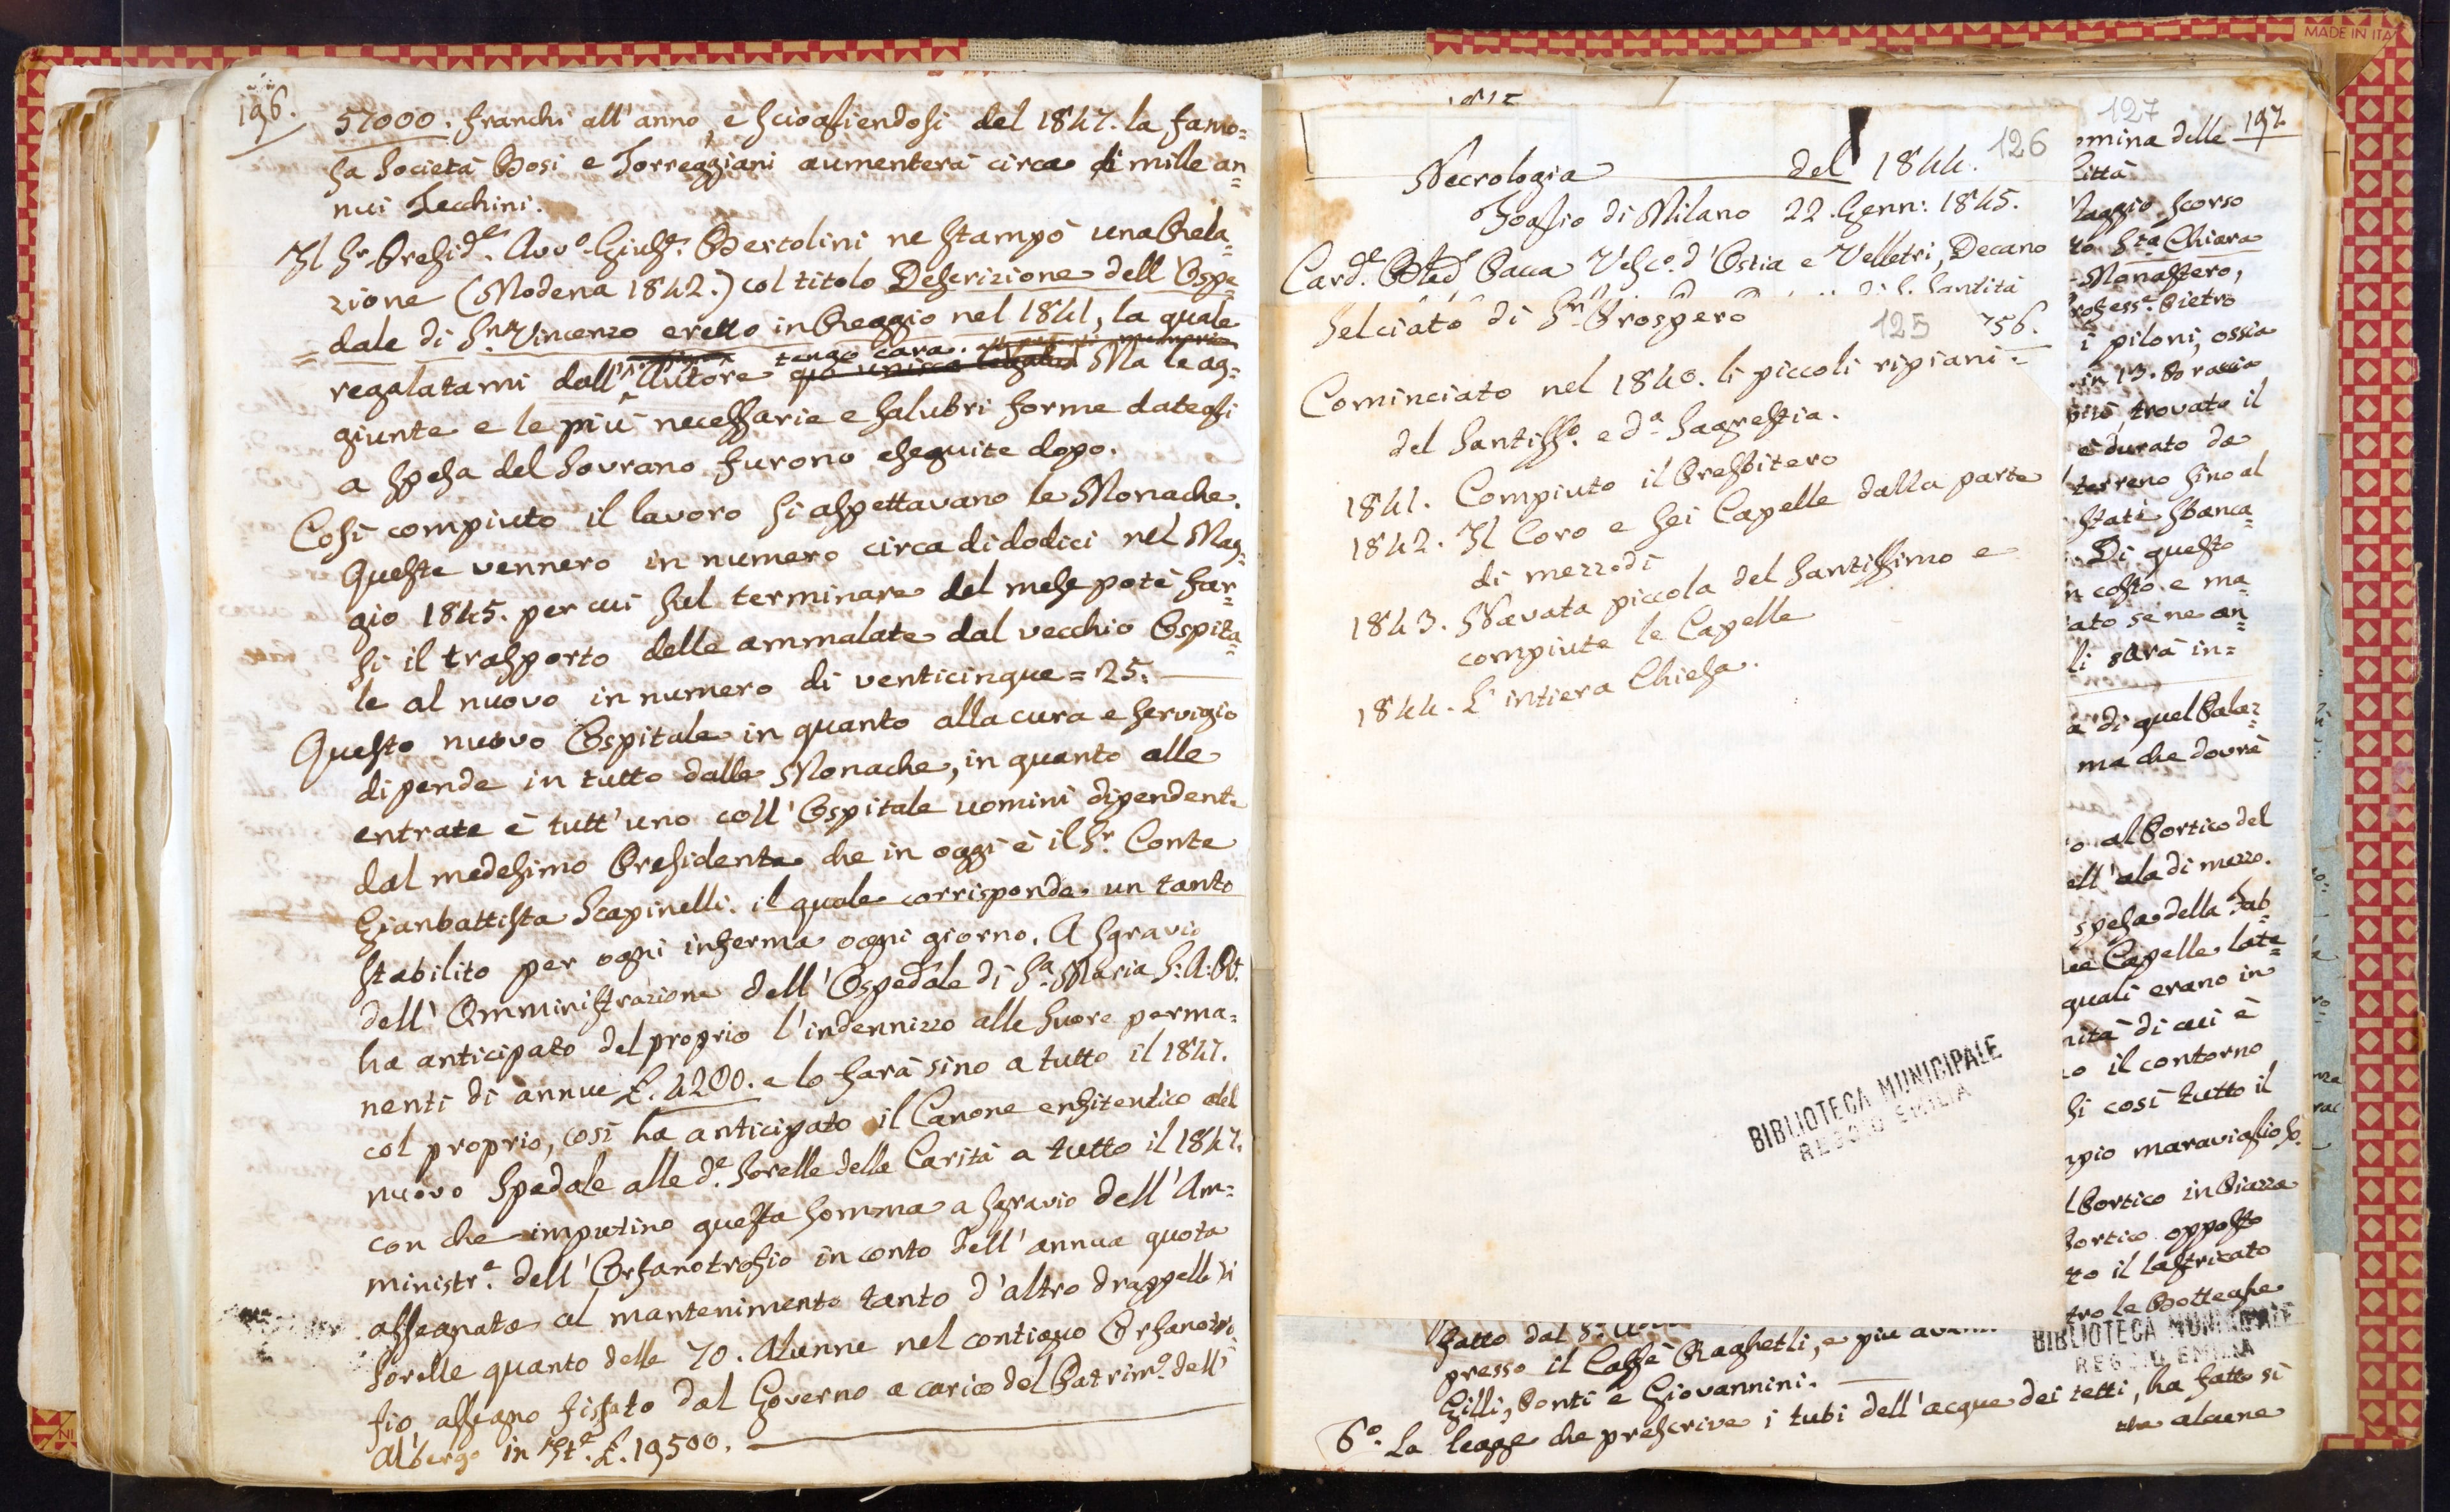 196.
57000. franchi all'anno, e sciogliendosi del 1847. la famo=
sa Società Bosi e Torreggiani aumenterà circa di mille an=
nui Zecchini.
Il Sr. Presid.e Avvo. Giusḗ. Bertolini ne stampò una Rela=
zione (Modena 1842.) col titolo Descrizione dell'Ospe=
=dale di Sn. Vincenzo eretto in Reggio nel 1841, la quale
tengo cara.
regalatami dall'Autore Ma le ag=
giunte e le più necessarie e salubri forme dategli
a spesa del Sovrano furono eseguite dopo.
Così compiuto il lavoro si aspettavano le Monache.
Queste vennero in numero circa di dodici nel Mag=
gio 1845. per cui sul terminare del mese potè far=
si il trasporto delle ammalate dal vecchio Ospita=
le al nuovo in numero di venticinque = 25.
Questo nuovo Ospitale in quanto alla cura e servigio
dipende in tutto dalle Monache, in quanto alle
entrate è tutt'uno coll'Ospitale uomini dipendente
dal medesimo Presidente che in oggi è il Sr. Conte
Gianbattista Scapinelli. il quale corrisponde un tanto
stabilito per ogni inferma ogni giorno. A sgravio
dell'Amministrazione dell'Ospedale di Sa. Maria S: A: R.
ha anticipato del proprio l'indennizzo alle Suore perma=
nenti di annue £. 4200. e lo farà sino a tutto il 1847.
col proprio, così ha anticipato il Canone enfiteutico del
nuovo Spedale alle de. Sorelle della Carità a tutto il 1847.
con che imputino questa somma a sgravio dell'Am=
ministre. dell'Orfanotrofio in conto dell'annua quota
assegnata al mantenimento tanto d'altro drappello di
Sorelle quanto delle 70. Alunne nel contiguo Orfanotro=
fio, assegno fissato dal Governo a carico del Patrimo. dell'
Albergo in £. 19500.
126
Necrologia del 1844.
Foglio di Milano 22. Genn: 1845.
Card.e Pacca Vesco. d'Ostia e Velletri, Decano
di S. Santità
Selciato di Sn. Prospero 125 756.
Cominciato nel 1840. li piccoli ripiani
del Santisso. e da. Sagrestia.
1841. Compiuto il Presbitero
1842. Il Coro e sei Capelle dalla parte
di mezzodì
1843. Navata piccola del Santissimo e
compiute le Capelle
1844. L'intiera Chiesa.
BIBLIOTECA MUNICIPALE
REGGIO EMILIA
127
197
omina delle
Città
Maggio scorso
to Sta. Chiara
Monastero,
Profess.e Pietro
i piloni, ossia
in 13. Braccia
trovato il
è durato da
terreno sino al
stati sbanca=
Di questo
n costo e ma
ato se ne an=
li sarà in=
a di quel Palaz=
ma che dovrè
o al Portico del
ell'ala di mezzo.
spesa della Fab=
Capelle late=
quali erano in
nità di cui è
o il contorno
si così tutto il
mpio maraviglioso.
l Portico in Piazza
Portico opposto
to il lastricato
tro le Botteghe
fatto dal
presso il Caffè Raghetli, e più
Gilli, Ponti e Giovannini.
BIBLIOTECA MUNICIPALE
REGGIO EMILIA
6o. La legge che prescrive i tubi dell'acque dei tetti, ha fatto sì
che alcune
MADE IN ITA